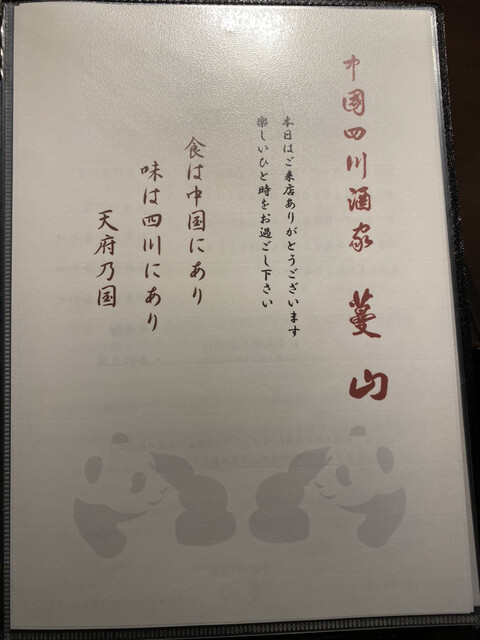 中國四川酒家 蔓山
本日はご来店ありがとうございます
楽しいひと時をお過ごし下さい
食は中国にあり
味は四川にあり
天府乃国